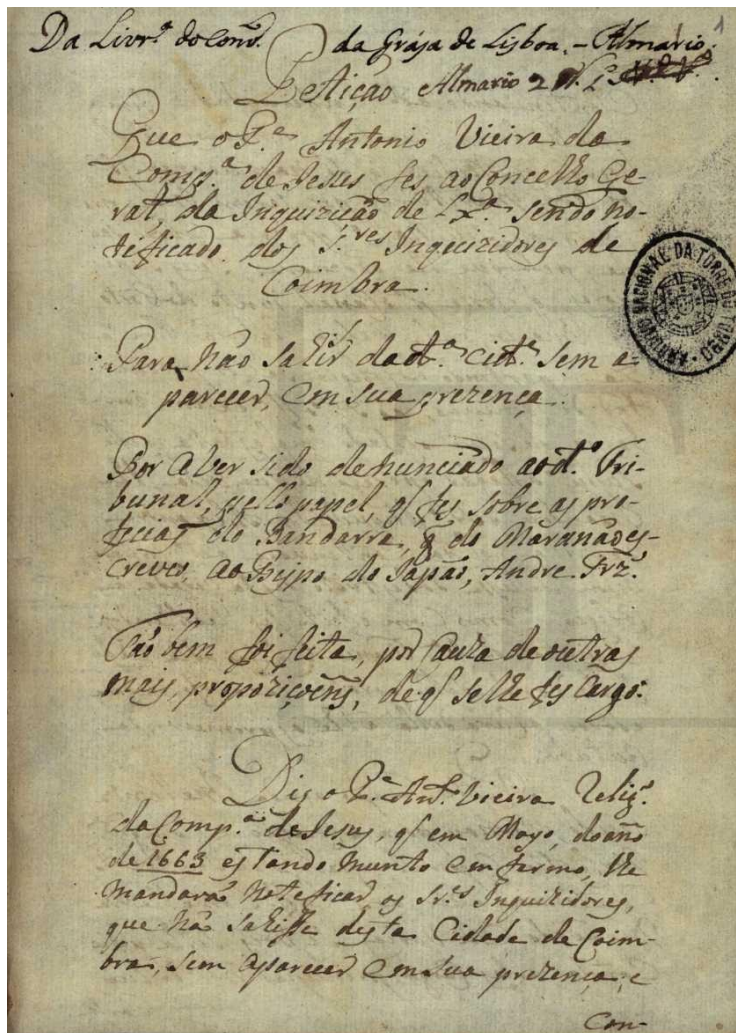 Da Livrª do conv. da graça de Lisboa. - Almario.
1
Petiçaõ Almario 2
Que o P.e Antonio Vieira da
Comp.a de Jesus fes ao Concelho Ge-
ral, da Inquiziçaõ de Lxª. sendo no-
teficado dos S.res Inquizidores de
Coimbra.
Para naõ sahir da d.a cid.e sem a-
parecer, em sua prezença.
Por aver sido denunciado ao d.o Tri-
bunal, pello papel, q̃ fes sobre as pro-
fecias do Bandarra, & do Maranaõ es-
creveo, ao Bispo do Japaõ, Andre Frz.
Taõ bem foi feita, por cauza de outras
mais, propoziçoẽns, de q̃ se lhe fes cargo:
Dis o P.e Ant.o Vieira Relig.o
da Comp.a de Jesus, q̃ em Mayo, do año
de 1663 estando muinto emfermo, lhe
mandaraõ noteficar os Sr.es Inquizidores,
que naõ sahisse desta Cidade de Coim-
bra, sem aparecer em sua prezença, e
con-
ARQUIVO NACIONAL DA TORRE DO TOMBO